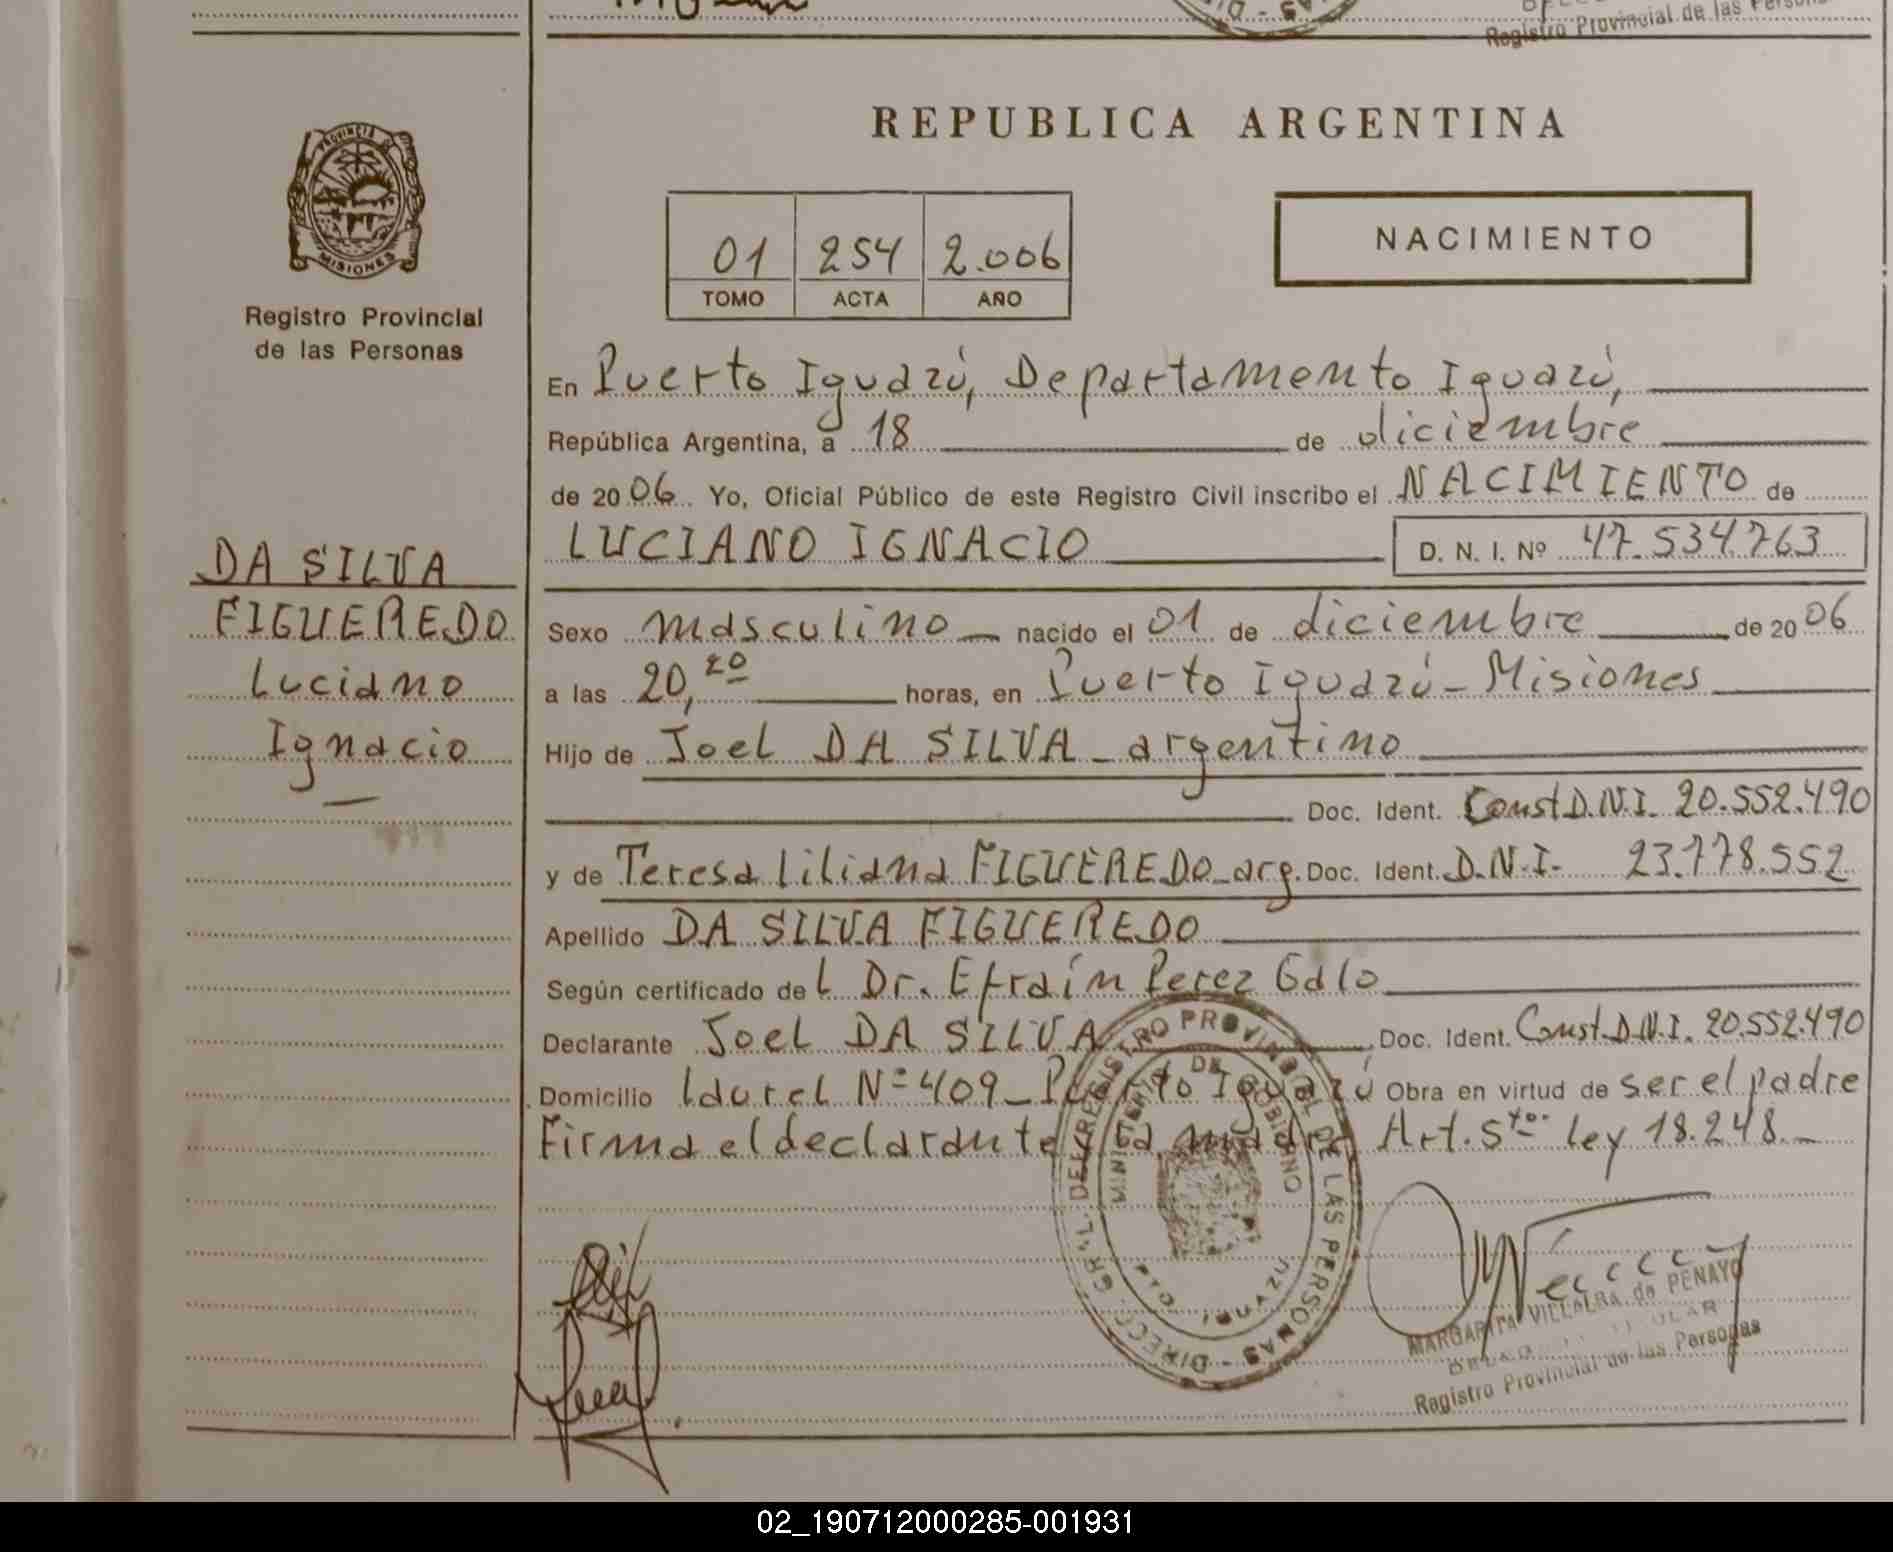 Registro Provincial de las Persona
REPUBLICA ARGENTINA
PROVINCIA DE
MISIONES
Registro Provincial
de las Personas
01 254 2.006
TOMO ACTA AÑO
NACIMIENTO
DA SILVA
FIGUEREDO
Luciano
Ignacio
En Puerto Iguazú, Departamento Iguazú,
República Argentina, a 18 de diciembre
de 2006 Yo, Oficial Público de este Registro Civil inscribo el NACIMIENTO de
LUCIANO IGNACIO D. N. I. Nº 47.534.763
Sexo masculino nacido el 01 de diciembre de 2006
a las 20,20 horas, en Puerto Iguazú - Misiones
Hijo de Joel DA SILVA - argentino
Doc. Ident. Const D.N.I. 20.552.490
y de Teresa Liliana FIGUEREDO - arg. Doc. Ident. D.N.I. 23.778.552
Apellido DA SILVA FIGUEREDO
Según certificado del Dr. Efraín Perez Galo
Declarante Joel DA SILVA Doc. Ident. Const. D.N.I. 20.552.490
Domicilio Laurel Nº 409 - Puerto Iguazú Obra en virtud de ser el padre
Firma el declarante y la madre Art. 5to. Ley 18.248. -
DIRECC. GRAL. DEL REGISTRO PROVINCIAL DE LAS PERSONAS -
MINISTERIO DE GOBIERNO
PTO. IGUAZU
MARGARITA VILLALBA de PENAYO
Registro Provincial de las Personas
02_190712000285-001931